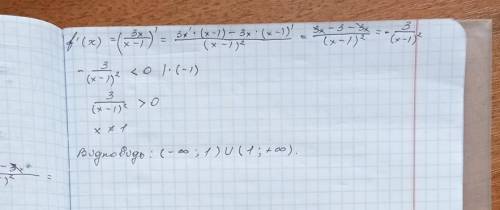 f'(x) = (3x/(x-1))' = (3x' · (x-1) - 3x · (x-1)')/(x-1)² = (3x - 3 - 3x)/(x-1)² = - 3/(x-1)²
- 3/(x-1)² < 0 | · (-1)
3/(x-1)² > 0
x ≠ 1
Відповідь: (-∞; 1) ∪ (1; +∞).